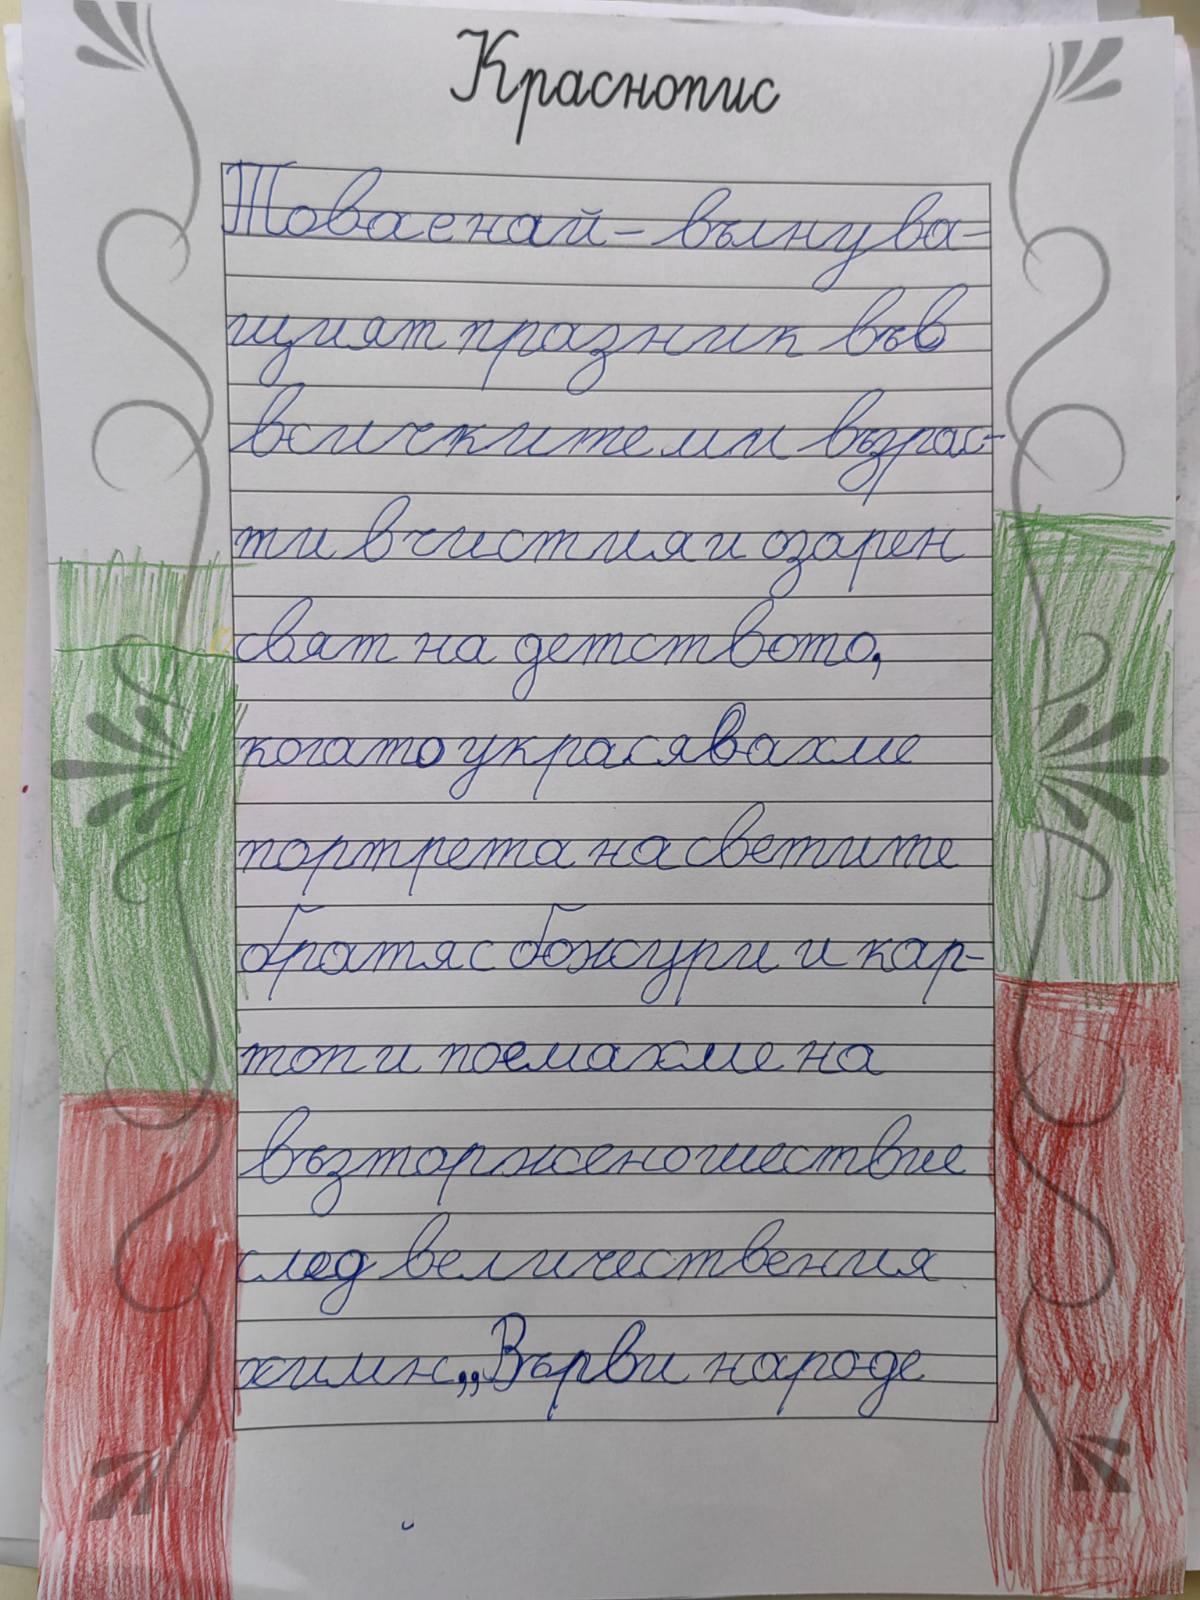 Краснопис
Това е най-вълнува-
щият празник във
всичките ми възрас-
ти в чистия и озарен
свят на детството,
когато украсявахме
портрета на светите
братя с божури и кар-
топ и поемахме на
възторженошествие
след величествения
химн „Върви народе